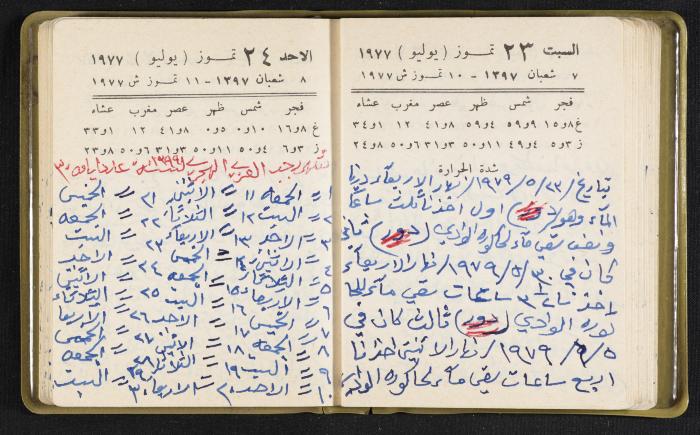 السبت ٢٣ تموز ( يوليو ) ١٩٧٧
٧ شعبان ١٣٩٧ - ١٠ تموز ش ١٩٧٧
فجر شمس ظهر عصر مغرب عشاء
غ ٨و١٥ ٩و٥٩ ٤و٥٩ ٨و٤١ ١٢ ١و٣٤
ز ٣و٥ ٤و٤٩ ١١و٥٠ ٣و٣١ ٦و٥٠ ٨و٢٤
شدة الحرارة
بتاريخ /٢٣/ ٥/ ١٩٧٩/ نهار الاربعاء
الماء وهو (دور) اول اخذنا ثلث ساعات
ونصف سقي ماء لحاكورة الوادي (دور) ثاني
كان في ٣٠/ ٥/ ١٩٧٩/ نهار الاربعاء
اخذنا ٣ ساعات سقي ماء للحا
كوره الوادي (دور) ثالث كان في
١٩٧٩ / نهار الاثنين اخذنا
اربع ساعات سقي ماء لحاكوره الوادي
الاحد ٢٤ تموز ( يوليو ) ١٩٧٧
٨ شعبان ١٣٩٧ - ١١ تموز ش ١٩٧٧
فجر شمس ظهر عصر مغرب عشاء
غ ٨و١٦ ١٠و٠ ٥و٠ ٨و٤١ ١٢ ١و٣٣
ز ٣و٦ ٤و٥٠ ١١و٥٠ ٣و٣١ ٦و٥٠ ٨و٢٣
١ الجمعه ١١ = الاثنين ٢١ = الخميس
٢ = السبت ١٢ = الثلاثاء ٢٢ = الجمعه
٣ = الاحد ١٣ = الاربعاء ٢٣ = السبت
٤ = الاثنين ١٤ = الخميس ٢٤ = الاحد
٥ = الثلاثاء ١٥ = الجمعه ٢٥ = الاثنين
٦ = الاربعاء ١٦ = السبت ٢٦ = الثلاثاء
٧ = الخميس ١٧ = الاحد ٢٧ = الاربعاء
٨ = الجمعه ١٨ = الاثنين ٢٨ = الخميس
٩ = السبت ١٩ = الثلاثاء ٢٩ = الجمعه
١٠ = الاحد ٢٠ = الاربعاء ٣٠ = السبت